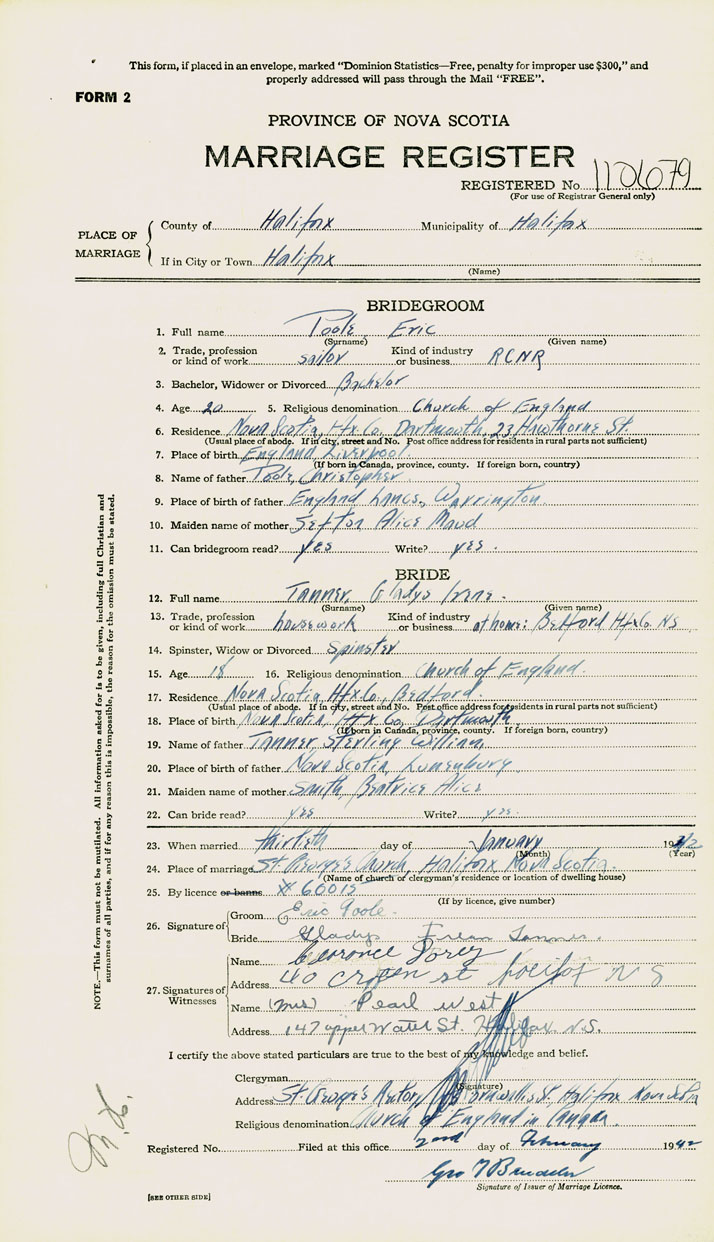 This form, if placed in an envelope, marked “Dominion Statistics—Free, penalty for improper use $300,” and
properly addressed will pass through the Mail “FREE”.
FORM 2
PROVINCE OF NOVA SCOTIA
MARRIAGE REGISTER
REGISTERED No. 110679
(For use of Registrar General only)
PLACE OF MARRIAGE
County of Halifax Municipality of Halifax
If in City or Town Halifax
(Name)
BRIDEGROOM
1. Full name Poole Eric
(Surname) (Given name)
2. Trade, profession or kind of work sailor Kind of industry or business R C N R
3. Bachelor, Widower or Divorced Bachelor
4. Age 20 5. Religious denomination Church of England
6. Residence Nova Scotia, Hx Co, Dartmouth, 23 Hawthorne St.
(Usual place of abode. If in city, street and No. Post office address for residents in rural parts not sufficient)
7. Place of birth England, Liverpool.
(If born in Canada, province, county. If foreign born, country)
8. Name of father Poole, Christopher
9. Place of birth of father England Lancs, Warrington.
10. Maiden name of mother Sefton Alice Maud
11. Can bridegroom read? yes Write? yes.
BRIDE
12. Full name Tanner Gladys Irene.
(Surname) (Given name)
13. Trade, profession or kind of work housework Kind of industry or business at home: Bedford Hx Co. NS
14. Spinster, Widow or Divorced Spinster
15. Age 18 16. Religious denomination Church of England.
17. Residence Nova Scotia, Hx Co., Bedford.
(Usual place of abode. If in city, street and No. Post office address for residents in rural parts not sufficient)
18. Place of birth Nova Scotia, Hx Co, Dartmouth,
(If born in Canada, province, county. If foreign born, country)
19. Name of father Tanner, Sterling William,
20. Place of birth of father Nova Scotia, Lunenburg
21. Maiden name of mother Smith, Beatrice Alice
22. Can bride read? yes Write? yes.
23. When married thirtieth day of January 1942
(Month) (Year)
24. Place of marriage St George's Church, Halifax Nova Scotia.
(Name of church or clergyman's residence or location of dwelling house)
25. By licence or banns # 66015
(If by licence, give number)
26. Signature of
Groom Eric Poole.
Bride Gladys Irean Tanner.
27. Signatures of Witnesses
Name Clarence
Address 40 st Halifax N S
Name (Mrs) Pearl West
Address 147 upper Water St. Halifax. N.S.
I certify the above stated particulars are true to the best of my knowledge and belief.
Clergyman
(Signature)
Address St. George's Rectory, Cornwallis St. Halifax Nova Scotia
Religious denomination Church of England in Canada.
Registered No. Filed at this office 2nd day of February 1942
Geo
Signature of Issuer of Marriage Licence.
[SEE OTHER SIDE]
NOTE.—This form must not be mutilated. All information asked for is to be given, including full Christian and
surnames of all parties, and if for any reason this is impossible, the reason for the omission must be stated.